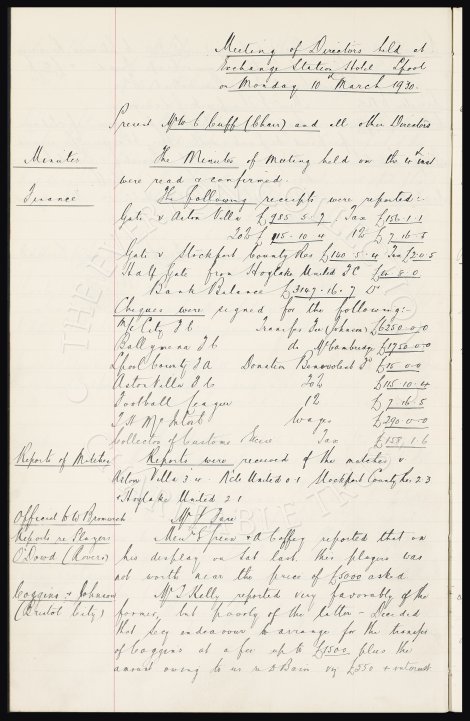 Meeting of Directors held at
Exchange Station Hotel Lpool
on Monday 10th March 1930.
Present Mr W C Cuff (Chair) and all other Directors
Minutes
The Minutes of Meeting held on the 4th inst
were read & confirmed.
Finance
The following receipts were reported:-
Gate v Aston Villa £985.5.7 Tax £156.1.1
20% £115.10.4 1% £7.16.5
Gate v Stockport County Res £140.5.4 Tax
Half Gate from Hoylake United FC
Bank Balance £3147.16.7 Dr
Cheques were signed for the following:-
M/c City F C Transfer Fee (Johnson) £6250.0.0
Ballymena F C do McCambridge £1750.0.0
Lpool County F A Donation Benevolent Fd £15.0.0
Aston Villa F C 20% £115.10.4
Football League 1% £7.16.5
T H McIntosh Wages £290.0.0
Collector of Customs Excise Tax £158.1.6
Reports of Matches
Reports were received of the matches v
Aston Villa 3.4 Leeds United 0.1 Stockport County Res 2.3
& Hoylake United 2.1
Official to W Bromwich
Mr J Sare
Reports re Players
Messrs Green & A Coffey reported that on
O'Dowd (Rovers)
his display on Sat last this players was
not worth near the price of £5000 asked.
Coggins & Johnson
(Bristol City)
Mr T Kelly reported very favorably of the
former, but poorly of the latter - Decided
that Secy endeavour to arrange for the transfer
of Coggins at a fee up to £1500 plus the
amount owing to us re Bain viz £550 + interest
THE EVERTON